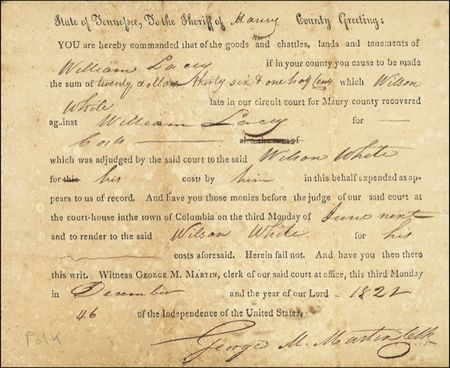 State of Tennessee, To the Sheriff of Maury County Greeting:
YOU are hereby commanded that of the goods and chattles, lands and tenements of
William Lacey if in your county you cause to be made
the sum of twenty dollars thirty six & one half cents which Wilson
White late in our circuit court for Maury county recovered
against William Lacey for —
Costs — also the sum of
which was adjudged by the said court to the said Wilson White
for this his costs by him in this behalf expended as ap-
pears to us of record. And have you those monies before the judge of our said court at
the court-house in the town of Columbia on the third Monday of June next
and to render to the said Wilson White for his
costs aforesaid. Herein fail not. And have you then there
this writ. Witness GEORGE M. MARTIN, clerk of our said court at office, this third Monday
in December and the year of our Lord 1822
46 of the Independence of the United States.
Polk
George M. Martin Clk